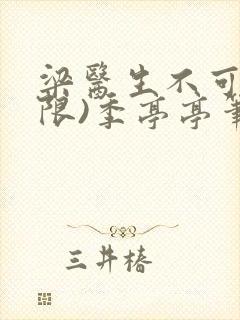 梁醫生不可
限)季亭亭筆
三井椿